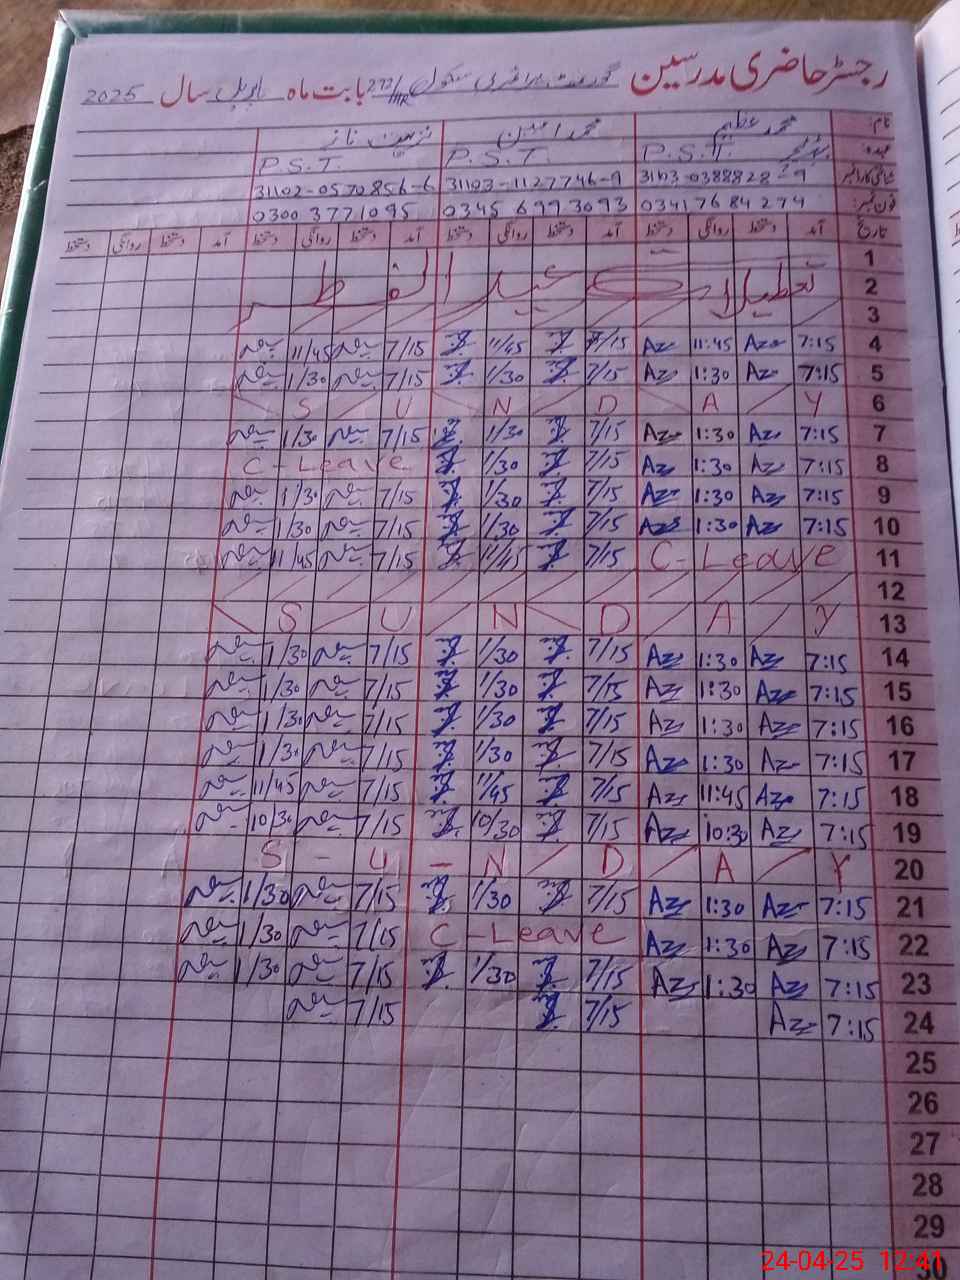 رجسٹر حاضری مدرسین گورنمنٹ پرائمری سکول 272/HR بابت ماہ اپریل سال 2025
نام: محمد عظیم محمد امین نزہت ناز
عہدہ: P.S.T. P.S.T. P.S.T.
شناختی کارڈ نمبر 31103-0388828-9 31103-1127746-9 31102-0570856-6
فون نمبر: 0341 76 84 274 0345 6993093 0300 3771095
تاریخ آمد دستخط روانگی دستخط آمد دستخط روانگی دستخط آمد دستخط روانگی دستخط آمد دستخط روانگی دستخط
1
2 تعطیلات عید الفطر
3
4 7:15 Az 11:45 Az 7/15 11/45 7/15 11/45
5 7:15 Az 1:30 Az 7/15 1/30 7/15 1/30
6 S U N D A Y
7 7:15 Az 1:30 Az 7/15 1/30 7/15 1/30
8 7:15 Az 1:30 Az 7/15 1/30 C-Leave
9 7:15 Az 1:30 Az 7/15 1/30 7/15 1/30
10 7:15 Az 1:30 Az 7/15 1/30 7/15 1/30
11 C-Leave 7/15 11/45 7/15 11/45
12
13 S U N D A Y
14 7:15 Az 1:30 Az 7/15 1/30 7/15 1/30
15 7:15 Az 1:30 Az 7/15 1/30 7/15 1/30
16 7:15 Az 1:30 Az 7/15 1/30 7/15 1/30
17 7:15 Az 1:30 Az 7/15 1/30 7/15 1/30
18 7:15 Az 11:45 Az 7/15 11/45 7/15 11/45
19 7:15 Az 10:30 Az 7/15 10/30 7/15 10/30
20 S - U - N D A Y
21 7:15 Az 1:30 Az 7/15 1/30 7/15 1/30
22 7:15 Az 1:30 Az C-Leave 7/15 1/30
23 7:15 Az 1:30 Az 7/15 1/30 7/15 1/30
24 7:15 Az 7/15 7/15
25
26
27
28
29
30
24-04-25 12:41